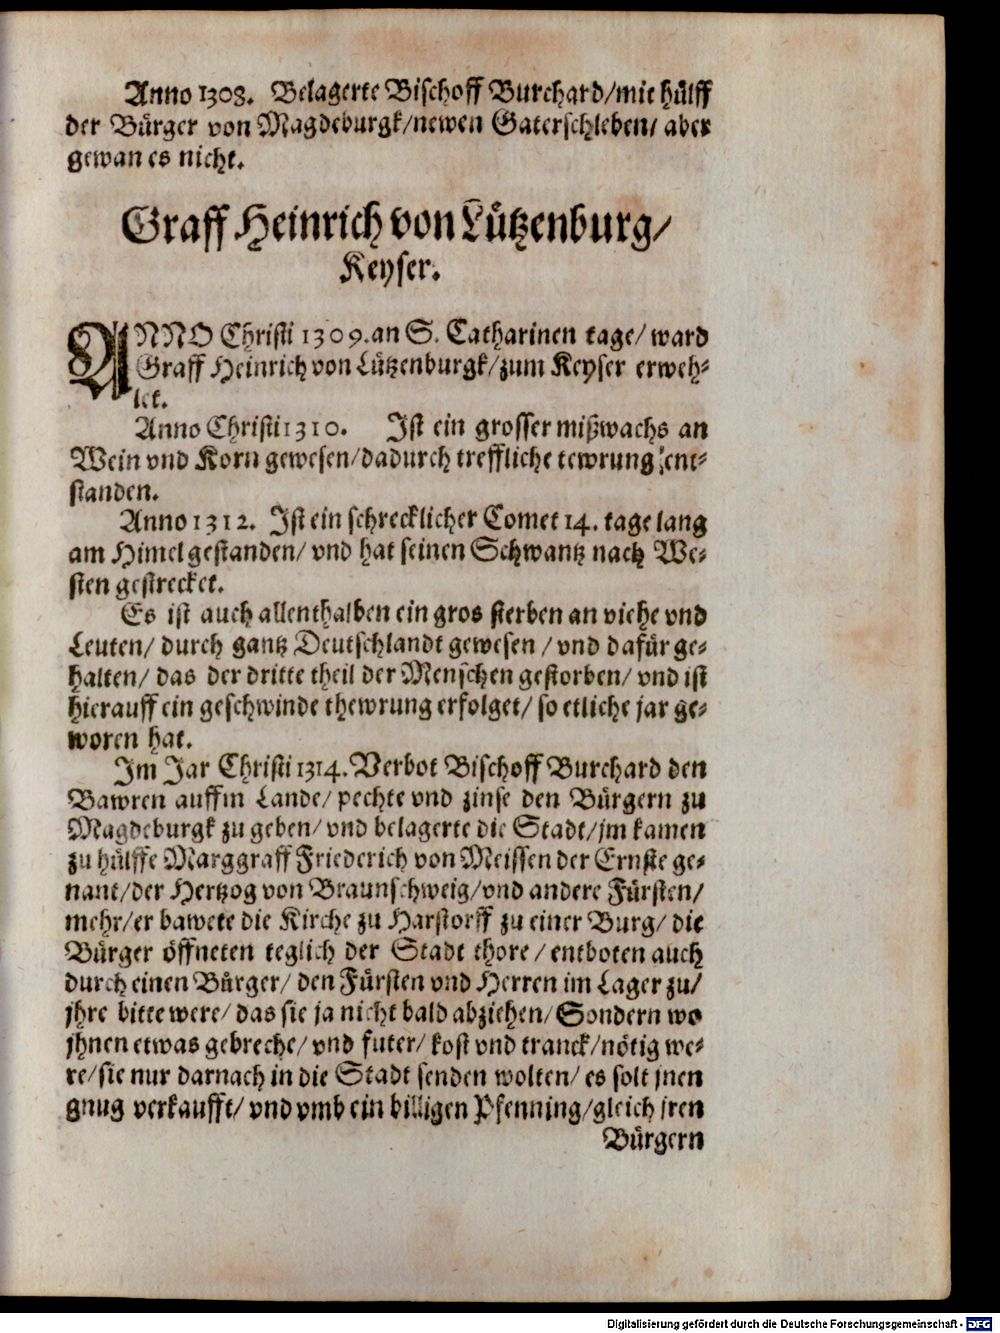 Anno 1308. Belagerte Bischoff Burchard/mit hülff
der Bürger von Magdeburgk/newen Gaterschleben/ aber
gewan es nicht.
Graff Heinrich von Lützenburg/
Keyser.
ANNO Christi 1309.an S. Catharinen tage/ ward
Graff Heinrich von Lützenburgk/zum Keyser erweh-
let.
Anno Christi 1310. Ist ein grosser mißwachs an
Wein vnd Korn gewesen/dadurch treffliche tewrung ent-
standen.
Anno 1312. Ist ein schrecklicher Comet 14. tage lang
am Himel gestanden/ vnd hat seinen Schwantz nach We-
sten gestrecket.
Es ist auch allenthalben ein gros sterben an viehe vnd
Leuten/ durch gantz Deutschlandt gewesen / vnd dafür ge-
halten/ das der dritte theil der Menschen gestorben/ vnd ist
hierauff ein geschwinde thewrung erfolget/ so etliche jar ge-
woren hat.
Im Jar Christi 1314. Verbot Bischoff Burchard den
Bawren auffm Lande/ pechte vnd zinse den Bürgern zu
Magdeburgk zu geben/ vnd belagerte die Stadt/jm kamen
zu hülffe Marggraff Friederich von Meissen der Ernste ge-
nant/der Hertzog von Braunschweig/vnd andere Fürsten/
mehr/er bawete die Kirche zu Harstorff zu einer Burg/ die
Bürger öffneten teglich der Stadt thore / entboten auch
durch einen Bürger/ den Fürsten vnd Herren im Lager zu/
jhre bitte were/ das sie ja nicht bald abziehen/ Sondern wo
jhnen etwas gebreche/ vnd futer/ kost vnd tranck/nötig we-
re/sie nur darnach in die Stadt senden wolten/ es solt jnen
gnug verkaufft/ vnd vmb ein billigen Pfenning/gleich jren
Bürgern
Digitalisierung gefördert durch die Deutsche Forschungsgemeinschaft - DFG